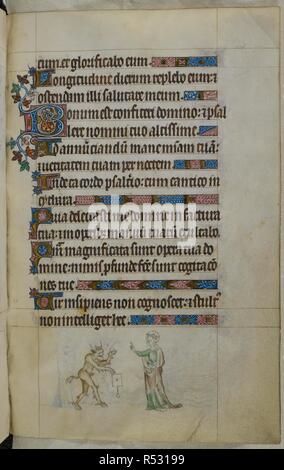 eum et glorificabo eum.
Longitudine dierum replebo eum: et
ostendam illi salutare meum.
Bonum est confiteri domino: et psal
lere nomini tuo altissime.
Ad annunciandum mane misericordiam tuam:
et veritatem tuam per noctem.
In decacordo psalterio: cum cantico in
cythara.
Quia delectasti me domine in factura
tua: et in operibus manuum tuarum exultabo.
Quam magnificata sunt opera tua do
mine: nimis profunde facte sunt cogitacio
nes tue.
Vir insipiens non cognoscet: et stultus
non intelliget hec.
alamy
Image ID: R53199
www.alamy.com